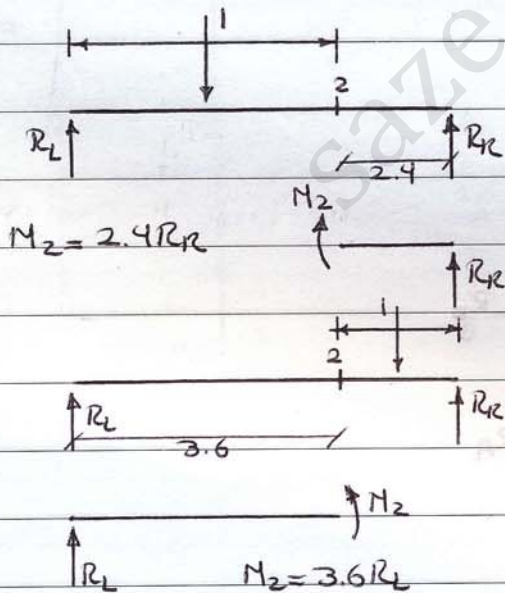 1
2
R_L
R_R
2.4
M_2
M_2 = 2.4 R_R
R_R
1
2
R_L
R_R
3.6
M_2
R_L
M_2 = 3.6 R_L
saze